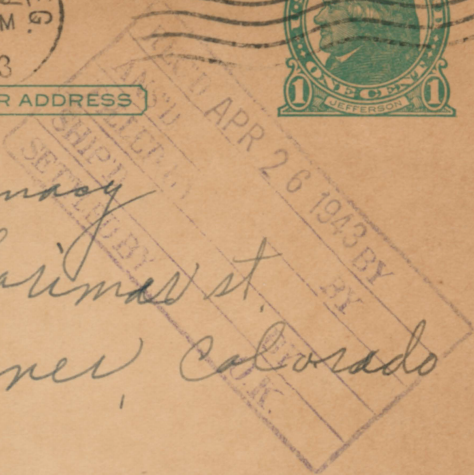 G.
M
3
ONE CENT
1 JEFFERSON 1
R ADDRESS
ACK'D APR 26 1943 BY
ANS'D BY
SHIP'D
SETTLED BY O.K.
macy
arimar st.
ner, Colorado